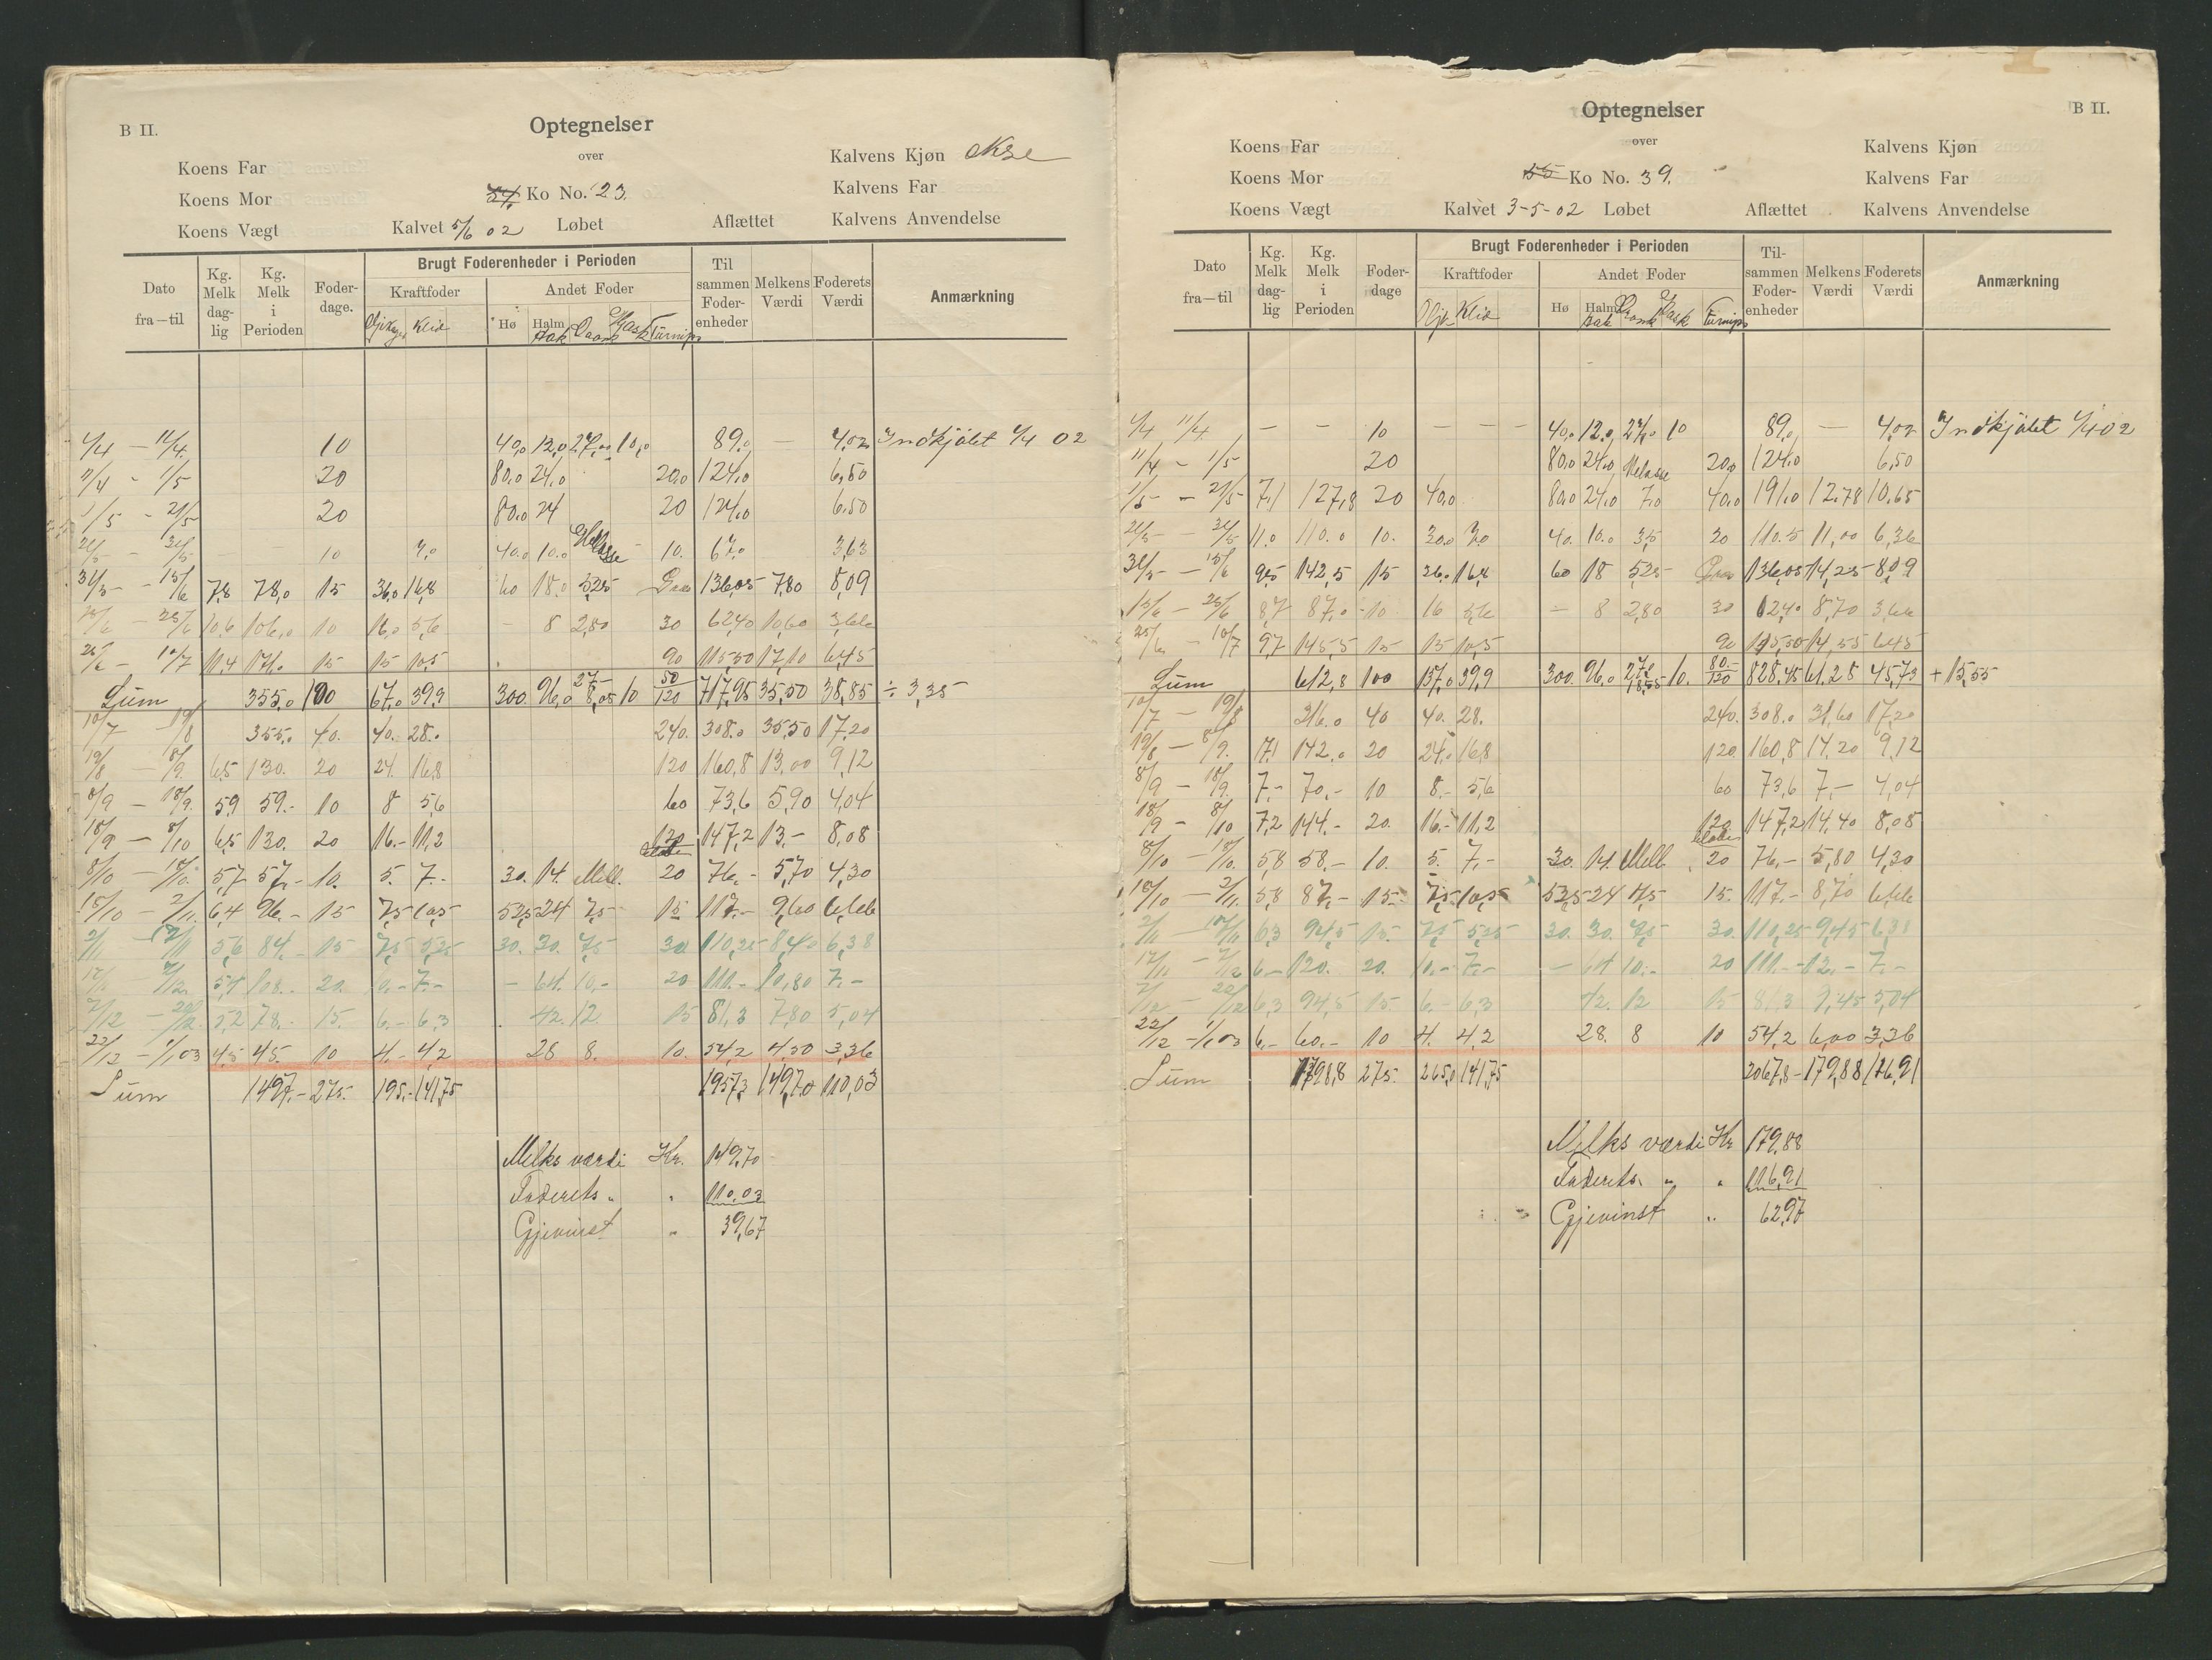 B II.
Optegnelser
over
Koens Far
Kalvens Kjøn Okse
Koens Mor
Ko No. 23.
Kalvens Far
Koens Vægt
Kalvet 5/6 02
Løbet
Aflættet
Kalvens Anvendelse
Dato fra—til
Kg. Melk dag-lig
Kg. Melk i Perioden
Foder-dage.
Brugt Foderenheder i Perioden
Kraftfoder
Andet Foder
Klid
Hø
Halm
Turnips
Til sammen Foder-enheder
Melkens Værdi
Foderets Værdi
Anmærkning
1/4 — 11/4 10 40,0 12,0 27,0 10,0 89,0 — 4,02 Indkjøbt 1/4 02
11/4 - 1/5 20 80,0 24,0 20,0 124,0 6,50
1/5 - 21/5 20 80,0 24 20 124,0 6,50
21/5 - 31/5 10 7,0 40,0 10,0 Melasse 10. 67,0 3,63
31/5 - 15/6 7,8 78,0 15 36,0 16,8 60 18,0 5,25 136,05 7,80 8,09
15/6 - 25/6 10,6 106,0 10 16,0 5,6 - 8 2,80 30 62,40 10,60 3,66
25/6 - 10/7 11,4 171,0 15 15 10,5 90 115,50 17,10 6,45
Sum 355,0 100 67,0 39,9 300. 96,0 27,- 8,05 10 50 120 717,95 35,50 38,85 ÷ 3,35
10/7 - 19/8 355,0 40. 40. 28.0 240. 308.0 35,50 17,20
19/8 - 8/9. 6,5 130. 20 24. 16,8 120 160,8 13,00 9,12
8/9 - 18/9. 5,9 59.- 10 8 5,6 60 73,6 5,90 4,04
18/9 - 8/10 6,5 130. 20 16.- 11,2 120 147,2 13.- 8,08
8/10 - 18/10. 5,7 57,- 10. 5. 7.- 30. 14. Mell. 20 76,- 5,70 4,30
18/10 - 2/11. 6,4 96.- 15 7,5 10,5 52,5 24 7,5 15 117.- 9,60 6,66
2/11 - 17/11 5,6 84.- 15 7,5 5,25 30. 30. 7,5 30 110,25 8,40 6,38
17/11 - 7/12. 5,4 108.- 20. 10.- 7.- - 64. 10,- 20 111.- 10,80 7.-
7/12 - 22/12. 5,2 78.- 15. 6.- 6,3 42. 12. 15 81,3 7,80 5,04
22/12 - 1/1 03 4,5 45. 10 4.- 4,2 28 8. 10. 54,2 4,50 3,36
Sum 1497.- 275. 195.- 141,75 1957,3 149,70 110,03
Melks værdi Kr. 149,70
Foderets " " 110,03
Gjevinst " 39,67
B II.
Optegnelser
over
Koens Far
Kalvens Kjøn
Koens Mor
55 Ko No. 39.
Kalvens Far
Koens Vægt
Kalvet 3-5-02
Løbet
Aflættet
Kalvens Anvendelse
Dato fra—til
Kg. Melk dag-lig
Kg. Melk i Perioden
Foder-dage
Brugt Foderenheder i Perioden
Kraftfoder
Andet Foder
Klid
Hø
Halm
Turnips
Til-sammen Foder-enheder
Melkens Værdi
Foderets Værdi
Anmærkning
1/4 11/4 — — 10 — — — 40,0 12,0 27,0 10 89,0 — 4,02 Indkjøbt 1/4 02
11/4 - 1/5 20 80,0 24,0 Melasse 20,0 124,0 6,50
1/5 - 21/5 7,1 127,8 20 40,0 80,0 24,0 7,0 40,0 191,0 12,78 10,65
21/5 - 31/5 11,0 110.0 10. 30,0 7,0 40. 10.0 3,5 20 110.5 11,00 6,36
31/5 - 15/6 9,5 142,5 15 36,0 16,8 60 18 5,25 136,05 14,25 8,09
15/6 - 25/6 8,7 87,0 10 16 5,6 — 8 2,80 30 62,40 8,70 3,66
25/6 - 10/7 9,7 145,5 15 15 10,5 90 115,50 14,55 6,45
Sum 612,8 100 137,0 39,9 300. 96,0 27,0 18,55 10. 80.- 120 828,45 61,28 45,73 + 15,55
10/7 - 19/8 316.0 40 40. 28. 240. 308.0 31,60 17,20
19/8 - 8/9. 7,1 142.0 20 24.0 16,8 120. 160,8 14,20 9,12
8/9 - 18/9. 7,- 70,- 10 8,- 5,6 60 73,6 7,- 4,04
18/9 - 8/10 7,2 144.- 20. 16.- 11,2 120 147,2 14,40 8,08
8/10 - 18/10. 5,8 58.- 10. 5. 7,- 30. 14. Mell. 20 76,- 5,80 4,30
18/10 - 2/11. 5,8 87,- 15. 7,5 10,5 52,5 24 7,5 15. 117.- 8,70 6,66
2/11 - 17/11 6,3 94,5 15. 7,5 5,25 30. 30. 7,5 30. 110,25 9,45 6,38
17/11 - 7/12 6,- 120. 20. 10.- 7.- — 64 10.- 20 111.- 12.- 7.-
7/12 - 22/12 6,3 94,5 15. 6.- 6,3 42. 12 15 81,3 9,45 5,04
22/12 - 1/1 03 6,- 60.- 10 4. 4,2 28. 8 10 54,2 6,00 3,36
Sum 1798,8 275. 265,0 141,75 2067,8 - 179,88 116,91
Melks værdi Kr 179,88
Foderets " " 116,91
Gjevinst " 62,97